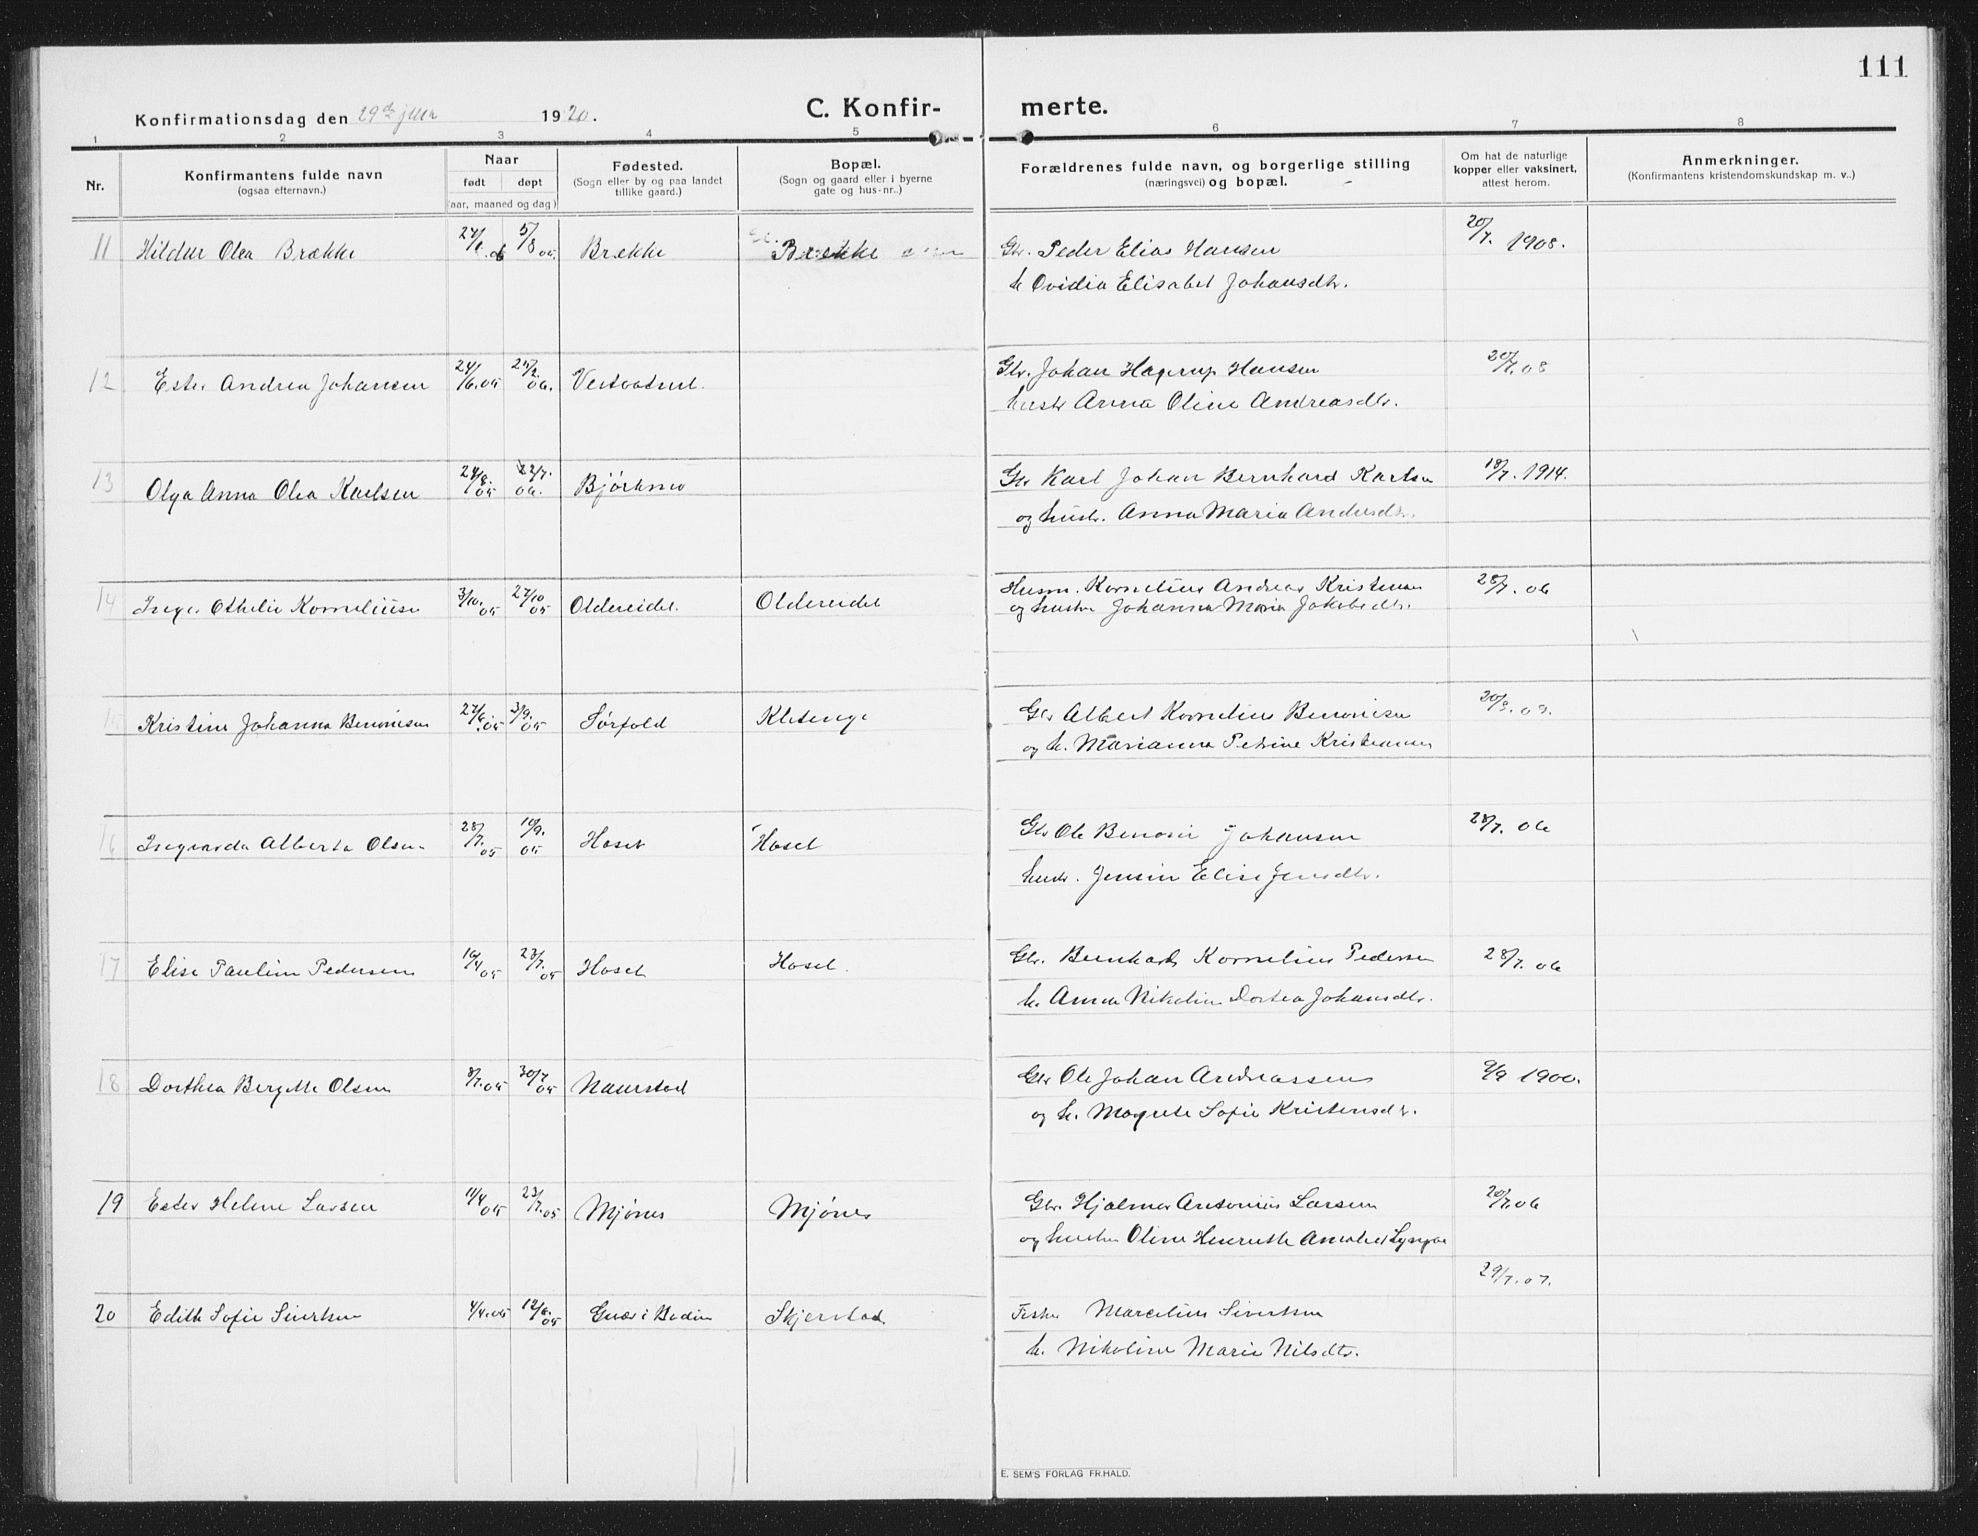 111
Konfirmationsdag den 29de 1920.
C. Konfirmerte.
1 2 3 4 5 6 7 8
Nr.
Konfirmantens fulde navn
(ogsaa efternavn.)
Naar
født døpt
(aar, maaned og dag)
Fødested.
(Sogn eller by og paa landet
tillike gaard.)
Bopæl.
(Sogn og gaard eller i byerne
gate og hus-nr..)
Forældrenes fulde navn, og borgerlige stilling
(næringsvei) og bopæl.
Om hat de naturlige
kopper eller vaksinert,
attest herom.
Anmerkninger.
(Konfirmantens kristendomskundskap m. v..)
11 Hildur Olea Brække 5/8 05 Brække Brække Gbr. Peder Elias Hansen 20/7. 1908.
h Ovidia Elisabet Johansdtr.
12 Ester Andrea Johansen 24/6.05 25/2.06. Gbr. Johan Hagerup Hansen 20/7.08
hustr Anna Oline Andreasdtr.
13 Olga Anna Olea Karlsen 24/8.05 22/7.06. Bjørkmo Gbr Karl Johan Bernhard Karlsen 18/7. 1914.
og hustr. Anna Maria Andersdtr.
14 Inga Othelie Korneliuse 3/10.05 27/10 05 Oldereidet. Oldereidet Husm. Kornelius Andreas Kristensen 28/7. 06
og hustru Johanna Maria Jakobsdtr.
15 Kristine Johanna Benonisen 27/6.05 3/9.05 Sørfold Gbr Albert Kornelius Benonisen 20/8.09.
og h. Marianna Petrine Kristiansen
16 Ingvarda Alberta Olsen 28/7.05 10/9.05 Hoset Hoset Gbr Ole Benoni Johansen 28/7. 06
hustr. Jensine Elise Jensdtr.
17 Elise Pauline Pedersen 16/4 05 23/7.05 Hoset Hoset. Gbr. Bernhard Kornelius Pedersen 28/7. 06
h. Anna Nikoline Dortea Johansdtr.
18 Dorthea Bergitte Olsen 8/7.05 30/7 05 Naurstad Gbr Ole Johan Andreassen 9/9 1900.
og h. Magrete Sofie Kristensdtr.
19 Ester Helene Larsen 11/4 05 23/7.05 Mjønes Mjønes Gbr. Hjalmar Antonius Larsen 20/7.06
og hustru Oline Henrette
29/7.07.
20 Edith Sofie Sivertsen 4/4.05 12/6.05 i Bodin Skjerstad Fisker Marcelius Sivertsen
h. Nikoline Marie Nilsdtr.
E. SEM'S FORLAG FR.HALD.